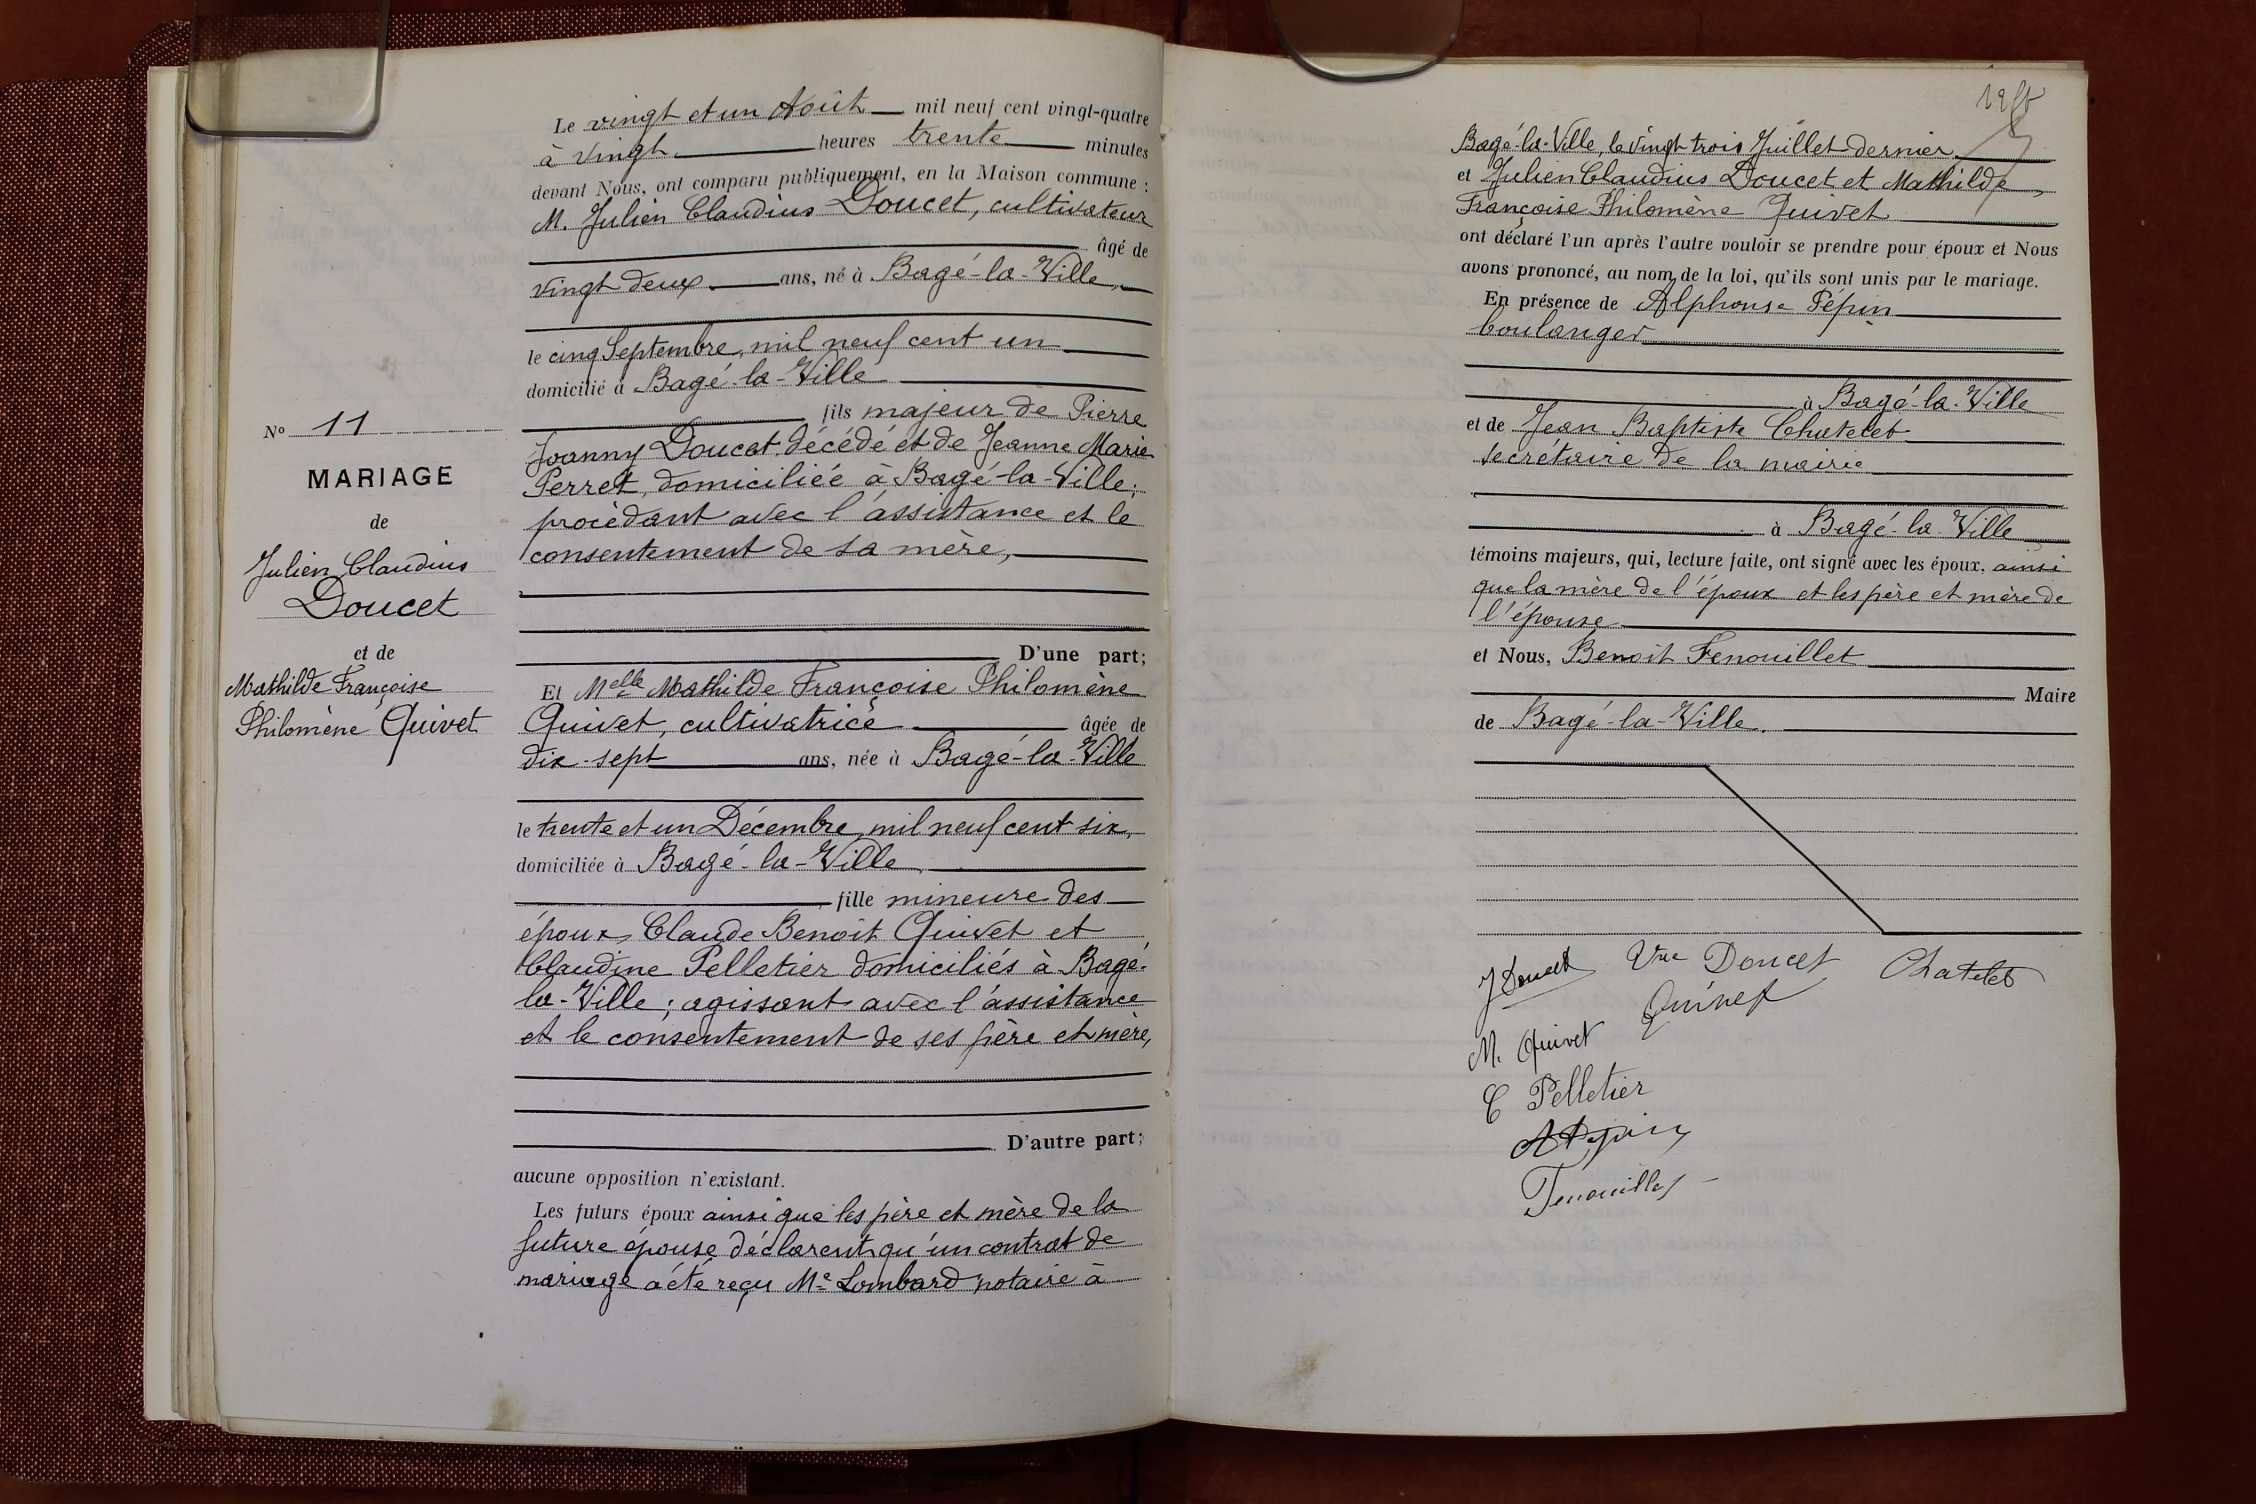 Le vingt et un Août mil neuf cent vingt-quatre
à vingt heures trente minutes
devant Nous, ont comparu publiquement, en la Maison commune :
M. Julien Claudius Doucet, cultivateur
âgé de
vingt deux ans, né à Bagé-la-Ville,
le cinq Septembre, mil neuf cent un
domicilié à Bagé-la-Ville
fils majeur de Pierre
Joanny Doucet décédé et de Jeanne Marie
Perret, domiciliée à Bagé-la-Ville;
procèdant avec l'assistance et le
consentement de sa mère,
D'une part;
Et Melle Mathilde Françoise Philomène
Quivet, cultivatrice âgée de
dix-sept ans, née à Bagé-la-Ville
le trente et un Décembre, mil neuf cent six,
domiciliée à Bagé-la-Ville
fille mineure des
époux Claude Benoit Quivet et
Claudine Pelletier domiciliés à Bagé-
la-Ville; agissant avec l'assistance
et le consentement de ses père et mère,
D'autre part;
aucune opposition n'existant.
Les futurs époux ainsi que les père et mère de la
future épouse déclarent qu'un contrat de
mariage a été reçu Me Lombard notaire à
No 11
MARIAGE
de
Julien Claudius
Doucet
et de
Mathilde Françoise
Philomène Quivet
Bagé-la-Ville, le vingt trois Juillet dernier
et Julien Claudius Doucet et Mathilde
Françoise Philomène Quivet
ont déclaré l'un après l'autre vouloir se prendre pour époux et Nous
avons prononcé, au nom de la loi, qu'ils sont unis par le mariage.
En présence de Alphonse Pépin
boulanger
à Bagé-la-Ville
et de Jean Baptiste Chatelet
secrétaire de la mairie
à Bagé-la-Ville
témoins majeurs, qui, lecture faite, ont signé avec les époux, ainsi
que la mère de l'époux et les père et mère de
l'épouse
et Nous, Benoit Fenouillet
Maire
de Bagé-la-Ville.
J Doucet Vve Doucet Chatelet
M. Quivet Quivet
C Pelletier
A Pépin
Fenouillet